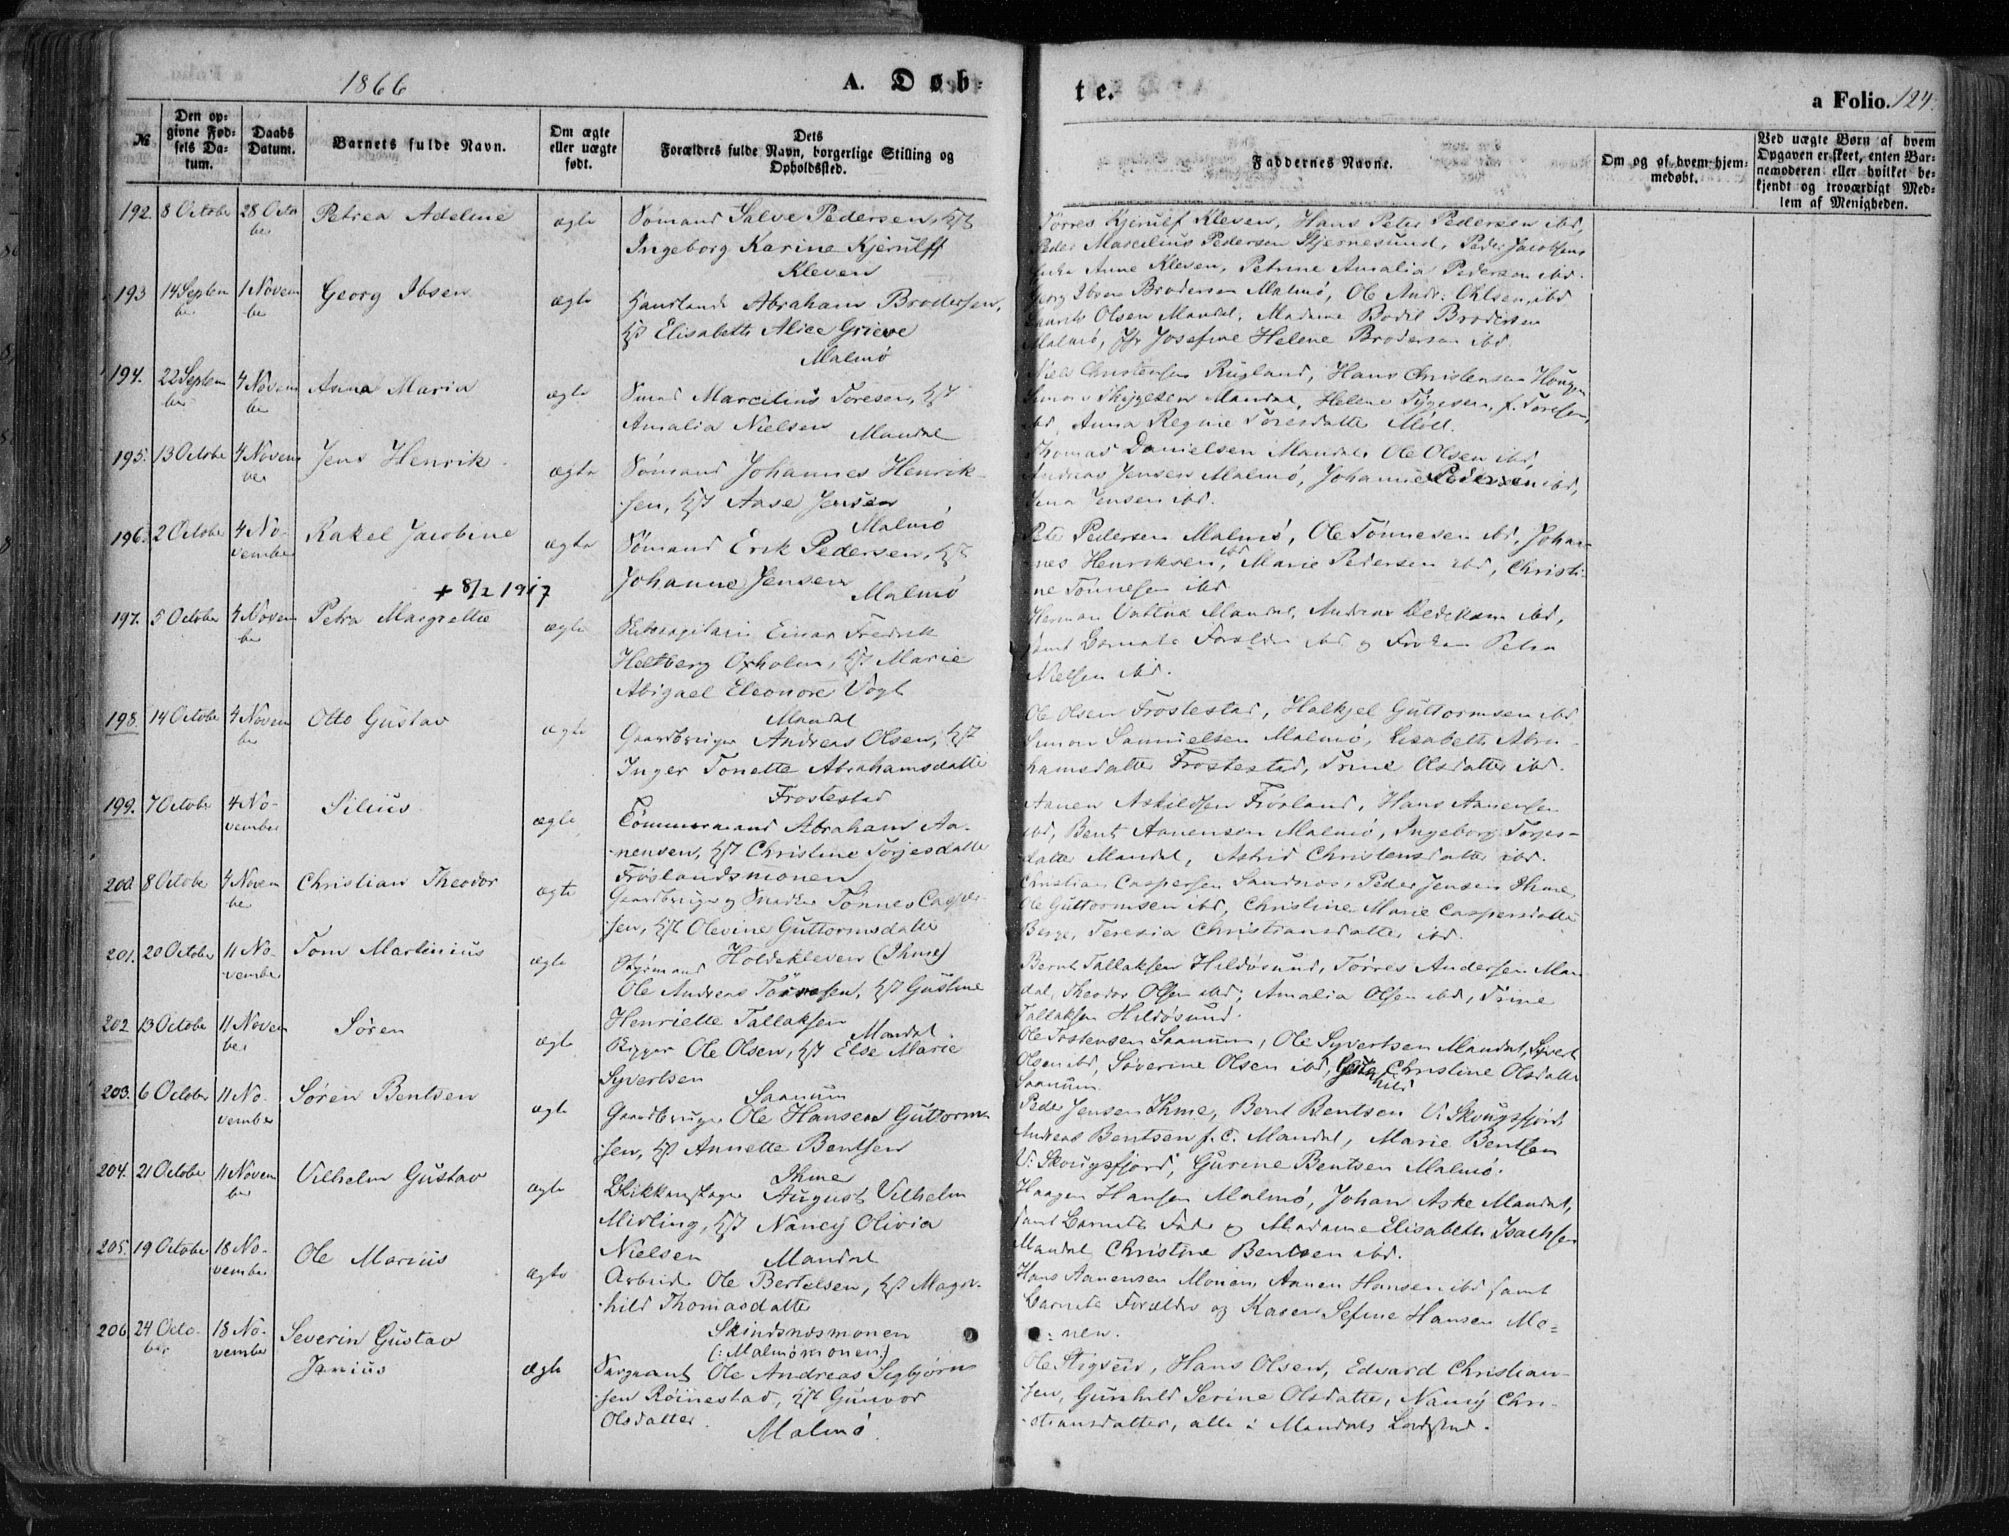 1866
A. Døb-
te.
a Folio. 124.
№
Den op-
givne Fød-
sels Da-
tum.
Daabs
Datum.
Barnets fulde Navn.
Om ægte
eller uægte
født.
Dets
Forældres fulde Navn, borgerlige Stilling og
Opholdssted.
Faddernes Navne.
Om og af hvem hjem-
medøbt.
Ved uægte Børn af hvem
Opgaven er skeet, enten Bar-
nemoderen eller hvilket be-
kjendt og troværdigt Med-
lem af Menigheden.
192. 8 October 28 Octo Petrea Adeline ægte Sømand Salve Pedersen, Hst
ber
Ingeborg Karine Kjerulff
Kleven
Tørres Kjerulf Kleven, Hans Peter Pedersen ibd,
Peder Marcelius Pedersen Stjernesund, Peder Jacobsen
Anne Kleven, Petrine Amalia Pedersen ibd.
193 14 Septem 1 Novem Georg Ibsen ægte Handlende Abraham Brodersen,
ber ber
Hst Elisabeth Alice Grieve
Malmø
Georg Ibsen Brodersen Malmø, Ole Andr: Ohlsen, ibd
Laurits Olsen Mandal, Madame Bodil Brodersen
Malmø, Jfr Josefine Helene Brodersen ibd.
194. 22 Septem 4 Novem Anna Maria ægte Smed Marcelius Toresen, Hst
ber ber
Amalia Nielsen
Mandal
Niels Christensen Rugland, Hans Christensen Hougen
Simon Thygesen Mandal, Helene Tygesen, f. Toresen,
ibd, Anna Regine Toresdatter Møll.
195. 13 Octobe 4 Novem Jens Henrik. ægte Sømand Johannes Henrik-
ber
sen, Hst Aase Jensen
Malmø
Thomas Danielsen Mandal, Ole Olsen ibd,
Andreas Jensen Malmø, Johanne Pedersen ibd,
Jensen ibd.
196. 2 October 4 No- Rakel Jacobine ægte Sømand Erik Pedersen, Hst
vember
Johanne Jensen
Malmø
Peter Pedersen Malmø, Ole Tønnesen ibd, Johan-
nes Henriksen, ibd, Marie Pedersen ibd, Christi-
ne Tønnesen ibd
+ 8/2 1917
197. 5 October 4 Novem Petra Margrethe ægte Einar Fredrik
ber
Heltberg Oxholm, Hst Marie
Abigael Eleonore Vogt
Mandal
Herman Mandal, Andreas ibd,
samt Barnets Forældre ibd og Frøken Petra
Nielsen ibd.
198. 14 October 4 Novem Otto Gustav ægte Gaardbruger Andreas Olsen, Hst
ber
Inger Tonette Abrahamsdatte
Frostestad
Ole Olsen Frostestad, Halkjel Guttormsen ibd
Simon Samuelsen Malmø, Lisabeth Abra-
hamsdatter Frostestad, Trine Olsdatter ibd.
199. 7 October 4 No- Silius. ægte Tømmermand Abraham Aa-
vember
nensen, Hst Christine Torjesdatte
Frøslandsmonen
Aanen Askildsen Frøsland, Hans Aanensen
ibd, Bent Aanensen Malmø, Ingeborg Torjes-
datter Mandal, Astrid Christensdatter ibd.
200. 8 Octobe 4 Novem Christian Theodor ægte Gaardbruger og Snedker Tønnes Casper-
ber
sen, Hst Olevine Guttormsdatte
Holdekleven (Ihme)
Christian Caspersen Sandnæs, Peder Jensen Ihme,
Ole Guttormsen ibd, Christine Marie Caspersdatter
Berge, Teresia Christiansdatter ibd.
201. 20 October 11 No- Tom Martinius ægte Styrmand
vember
Ole Andreas Tørresen, Hst Gustine
Henriette Tallaksen
Mandal.
Bernt Tallaksen Hildøsund, Tørres Andersen Man
dal, Theodor Olsen ibd, Amalia Olsen ibd, Trine
Tallaksen Hildøsund.
202 13 October 11 Novem Søren ægte Rigger Ole Olsen, Hst Else Marie
ber
Syvertsen
Saanum
Ole Tostensen Saanum, Ole Syvertsen Mandal, Syvert
Olsen ibd, Søverine Olsen ibd, Christine Olsdatter
Saanum
203. 6 October 11 No- Søren Bentsen ægte Gaardbruger Ole Hansen Guttorm-
vember
sen, Hst Annette Bentsen
Ihme
Peder Jensen Ihme, Bernt Bentsen V: Skougsfjord
Andreas Bentsen f. C. Mandal, Marie Bentsen
V: Skougsfjord, Gurine Bentsen Malmø.
204. 21 October 11 Novem Vilhelm Gustav ægte Blikkenslager August Vilhelm
ber
Midling, Hst Nancy Olivia
Nielsen Mandal
Haagen Hansen Malmø, Johan Aske Mandal,
samt Barnets Fader og Madame Elisabeth Isachsen
Mandal, Christine Bentsen ibd.
205. 19 October 18 No- Ole Marius ægte Arbeider Ole Bertelsen, Hst Magn-
vember
hild Thomasdatter
Skindsnæsmonen
(: Malmømonen:)
Hans Aanensen Monen, Aanen Hansen ibd samt
Barnets Forældre og Karen Sefine Hansen Mo-
nen.
206 24 Octo- 18 No- Severin Gustav
ber vember
Janius ægte Sergeant Ole Andreas Sigbjørn-
sen Røinestad, Hst Gunvor
Olsdatter.
Malmø.
Ole Stigsen, Hans Olsen, Edvard Christian-
sen, Gunhild Serine Olsdatter, Nancy Chri-
stiansdatter, alle i Mandals Landsogn.